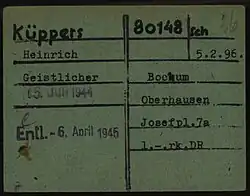 Küppers 80148 Sch
Heinrich 5.2.96.
Geistlicher Bochum
15. Juli 1944 Oberhausen
Josefpl.7a
Entl. - 6. April 1945
1.-.rk.DR